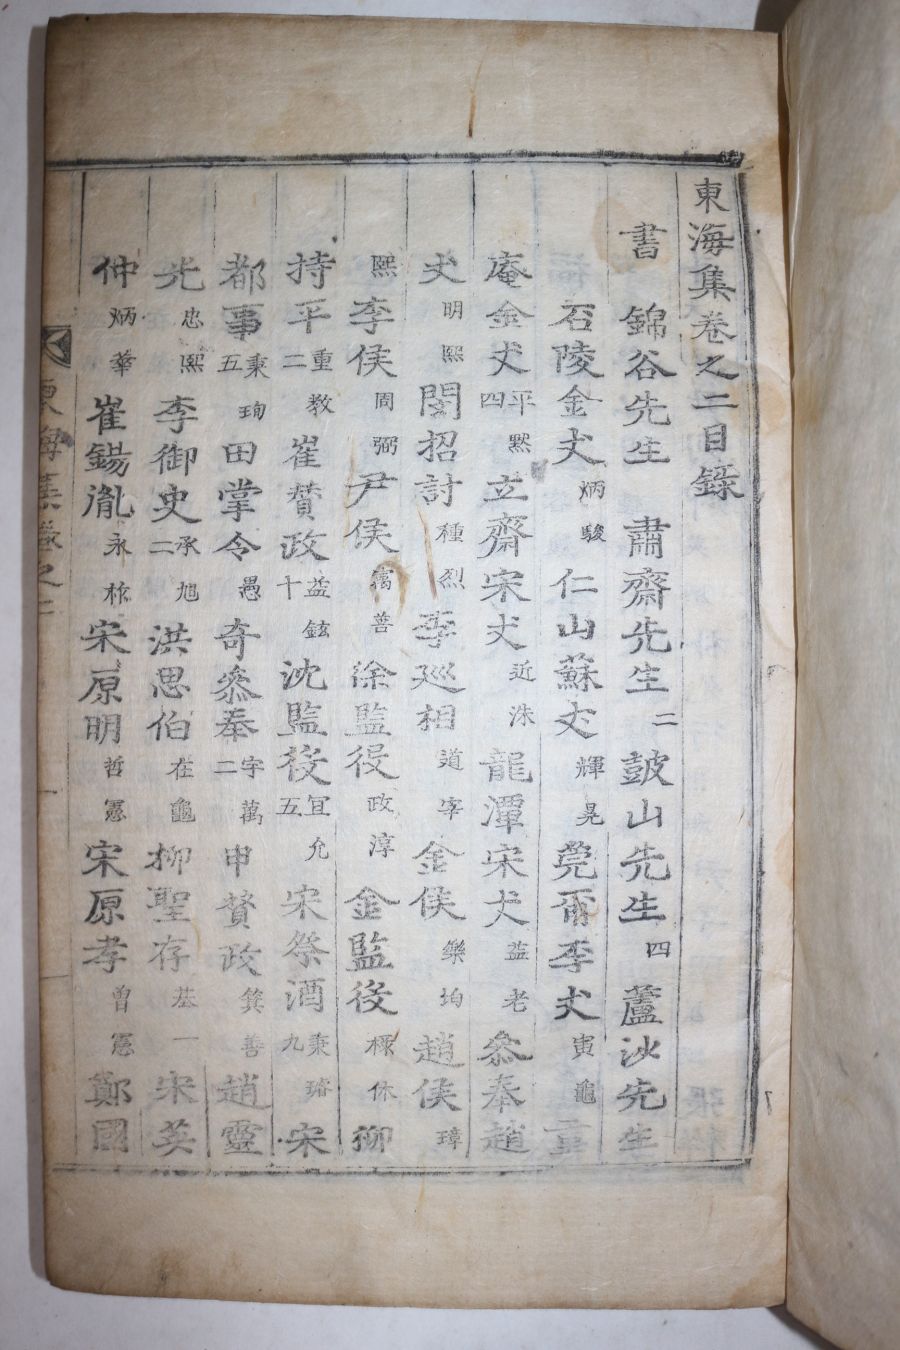 東海集卷之二目錄
書 錦谷先生 肅齋先生二 鼓山先生四 蘆沙先生
石陵金丈炳駿 仁山蘇丈輝晃 莞爾李丈寅龜 重
庵金丈平默四 立齋宋丈近洙 龍潭宋丈益老 參奉趙
丈明熙 閔招討種烈 李巡相道宰 金侯樂均 趙侯瑋
熙 李侯周弼 尹侯寗善 徐監役政淳 金監役 休 柳
持平重教二 崔贊政益鉉十 沈監役宜允五 宋祭酒秉璿九 宋
都事秉珣五 田掌令愚 奇參奉宇萬二 申贊政箕善 趙靈
光忠熙 李御史承旭二 洪思伯在龜 柳聖存基一 宋英
仲炳華 崔錫胤永 宋原明哲憲 宋原孝曾憲 鄭國
東海集卷之二
一